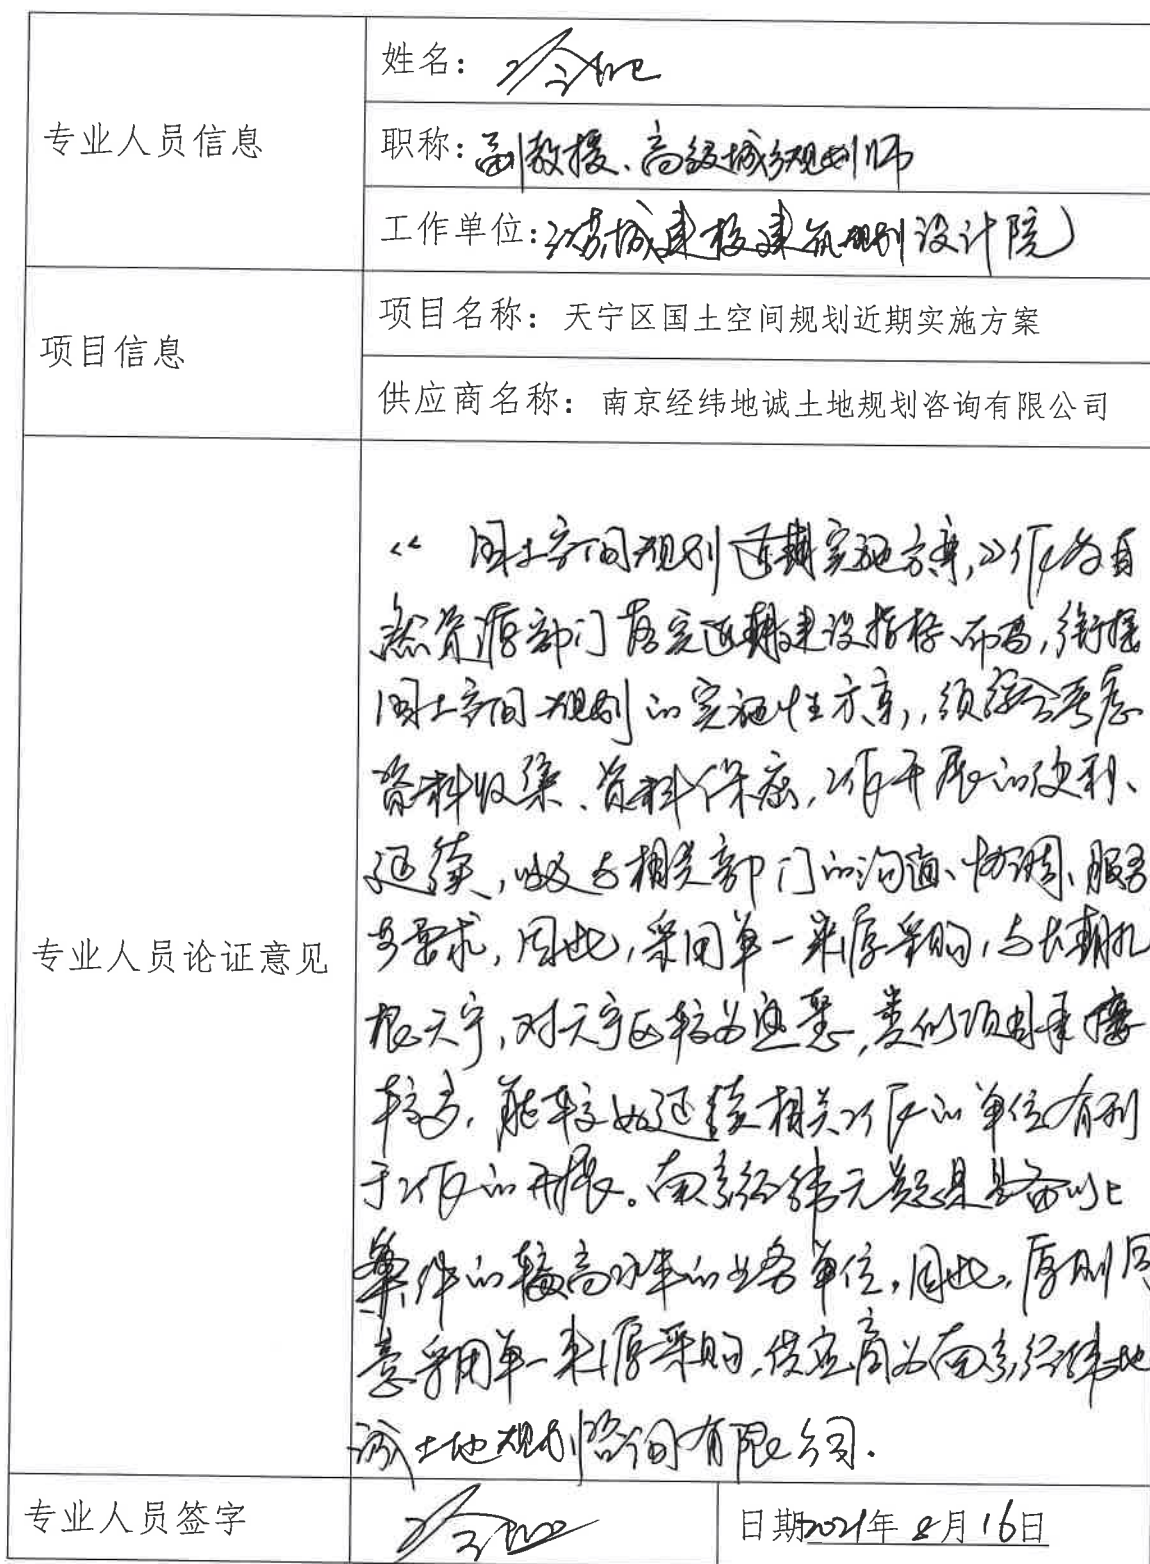 专业人员信息
姓名：
职称：副教授、高级城乡规划师
工作单位：江苏城建校建筑规划设计院
项目信息
项目名称：天宁区国土空间规划近期实施方案
供应商名称：南京经纬地诚土地规划咨询有限公司
专业人员论证意见
《国土空间规划近期实施方案》作为自
然资源部门落实近期建设指标布局，衔接
国土空间规划的实施性方案，须综合考虑
资料收集、资料保密，工作开展的便利、
延续，以及与相关部门的沟通、协调、服务
等要求，因此，采用单一来源采购，与长期扎
根天宁，对天宁区较为熟悉，类似项目承接
较多，能较好延续相关工作的单位有利
于工作的开展。南京经纬无疑是具备以上
条件的较高水平的业务单位，因此，原则同
意采用单一来源采购，供应商为南京经纬地
诚土地规划咨询有限公司.
专业人员签字
日期2021年8月16日